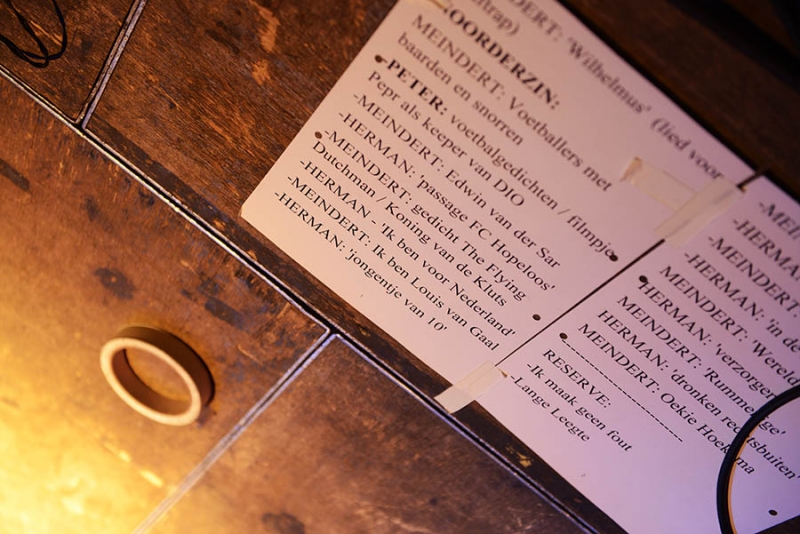 DERT: 'Wilhelmus' (lied voor
aftrap)
OORDERZIN:
MEINDERT: Voetballers met
baarden en snorren
-PETER: voetbalgedichten / filmpje
Pepr als keeper van DIO
-MEINDERT: Edwin van der Sar
-HERMAN: 'passage FC Hopeloos'
-MEINDERT: gedicht The Flying
Dutchman / Koning van de Kluts
-HERMAN - 'Ik ben voor Nederland'
-MEINDERT: Ik ben Louis van Gaal
-HERMAN: 'jongentje van 10'
-MEI
-HERMA
-MEINDERT:
-HERMAN: 'in de
MEINDERT: 'Wereld
HERMAN: 'verzorge
MEINDERT: 'Rummenige'
HERMAN: 'dronken rechtsbuiten'
MEINDERT: Oekie Hoekma
RESERVE:
-Ik maak geen fout
-Lange Leegte